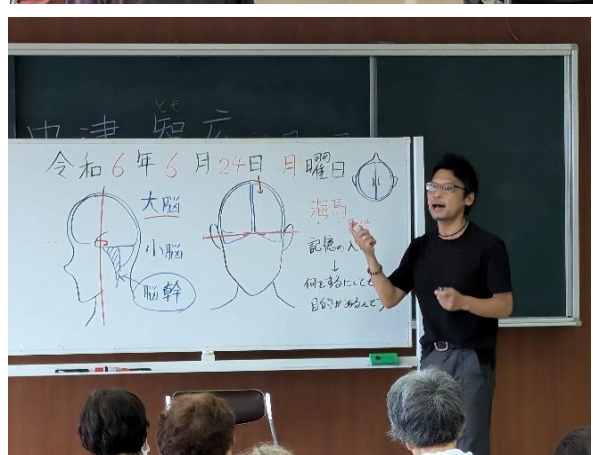 とも
中津 智広
令和6年6月24日 月曜日
大脳
小脳
脳幹
海馬
記憶の入
↓
何をするにしても
目的があるんで